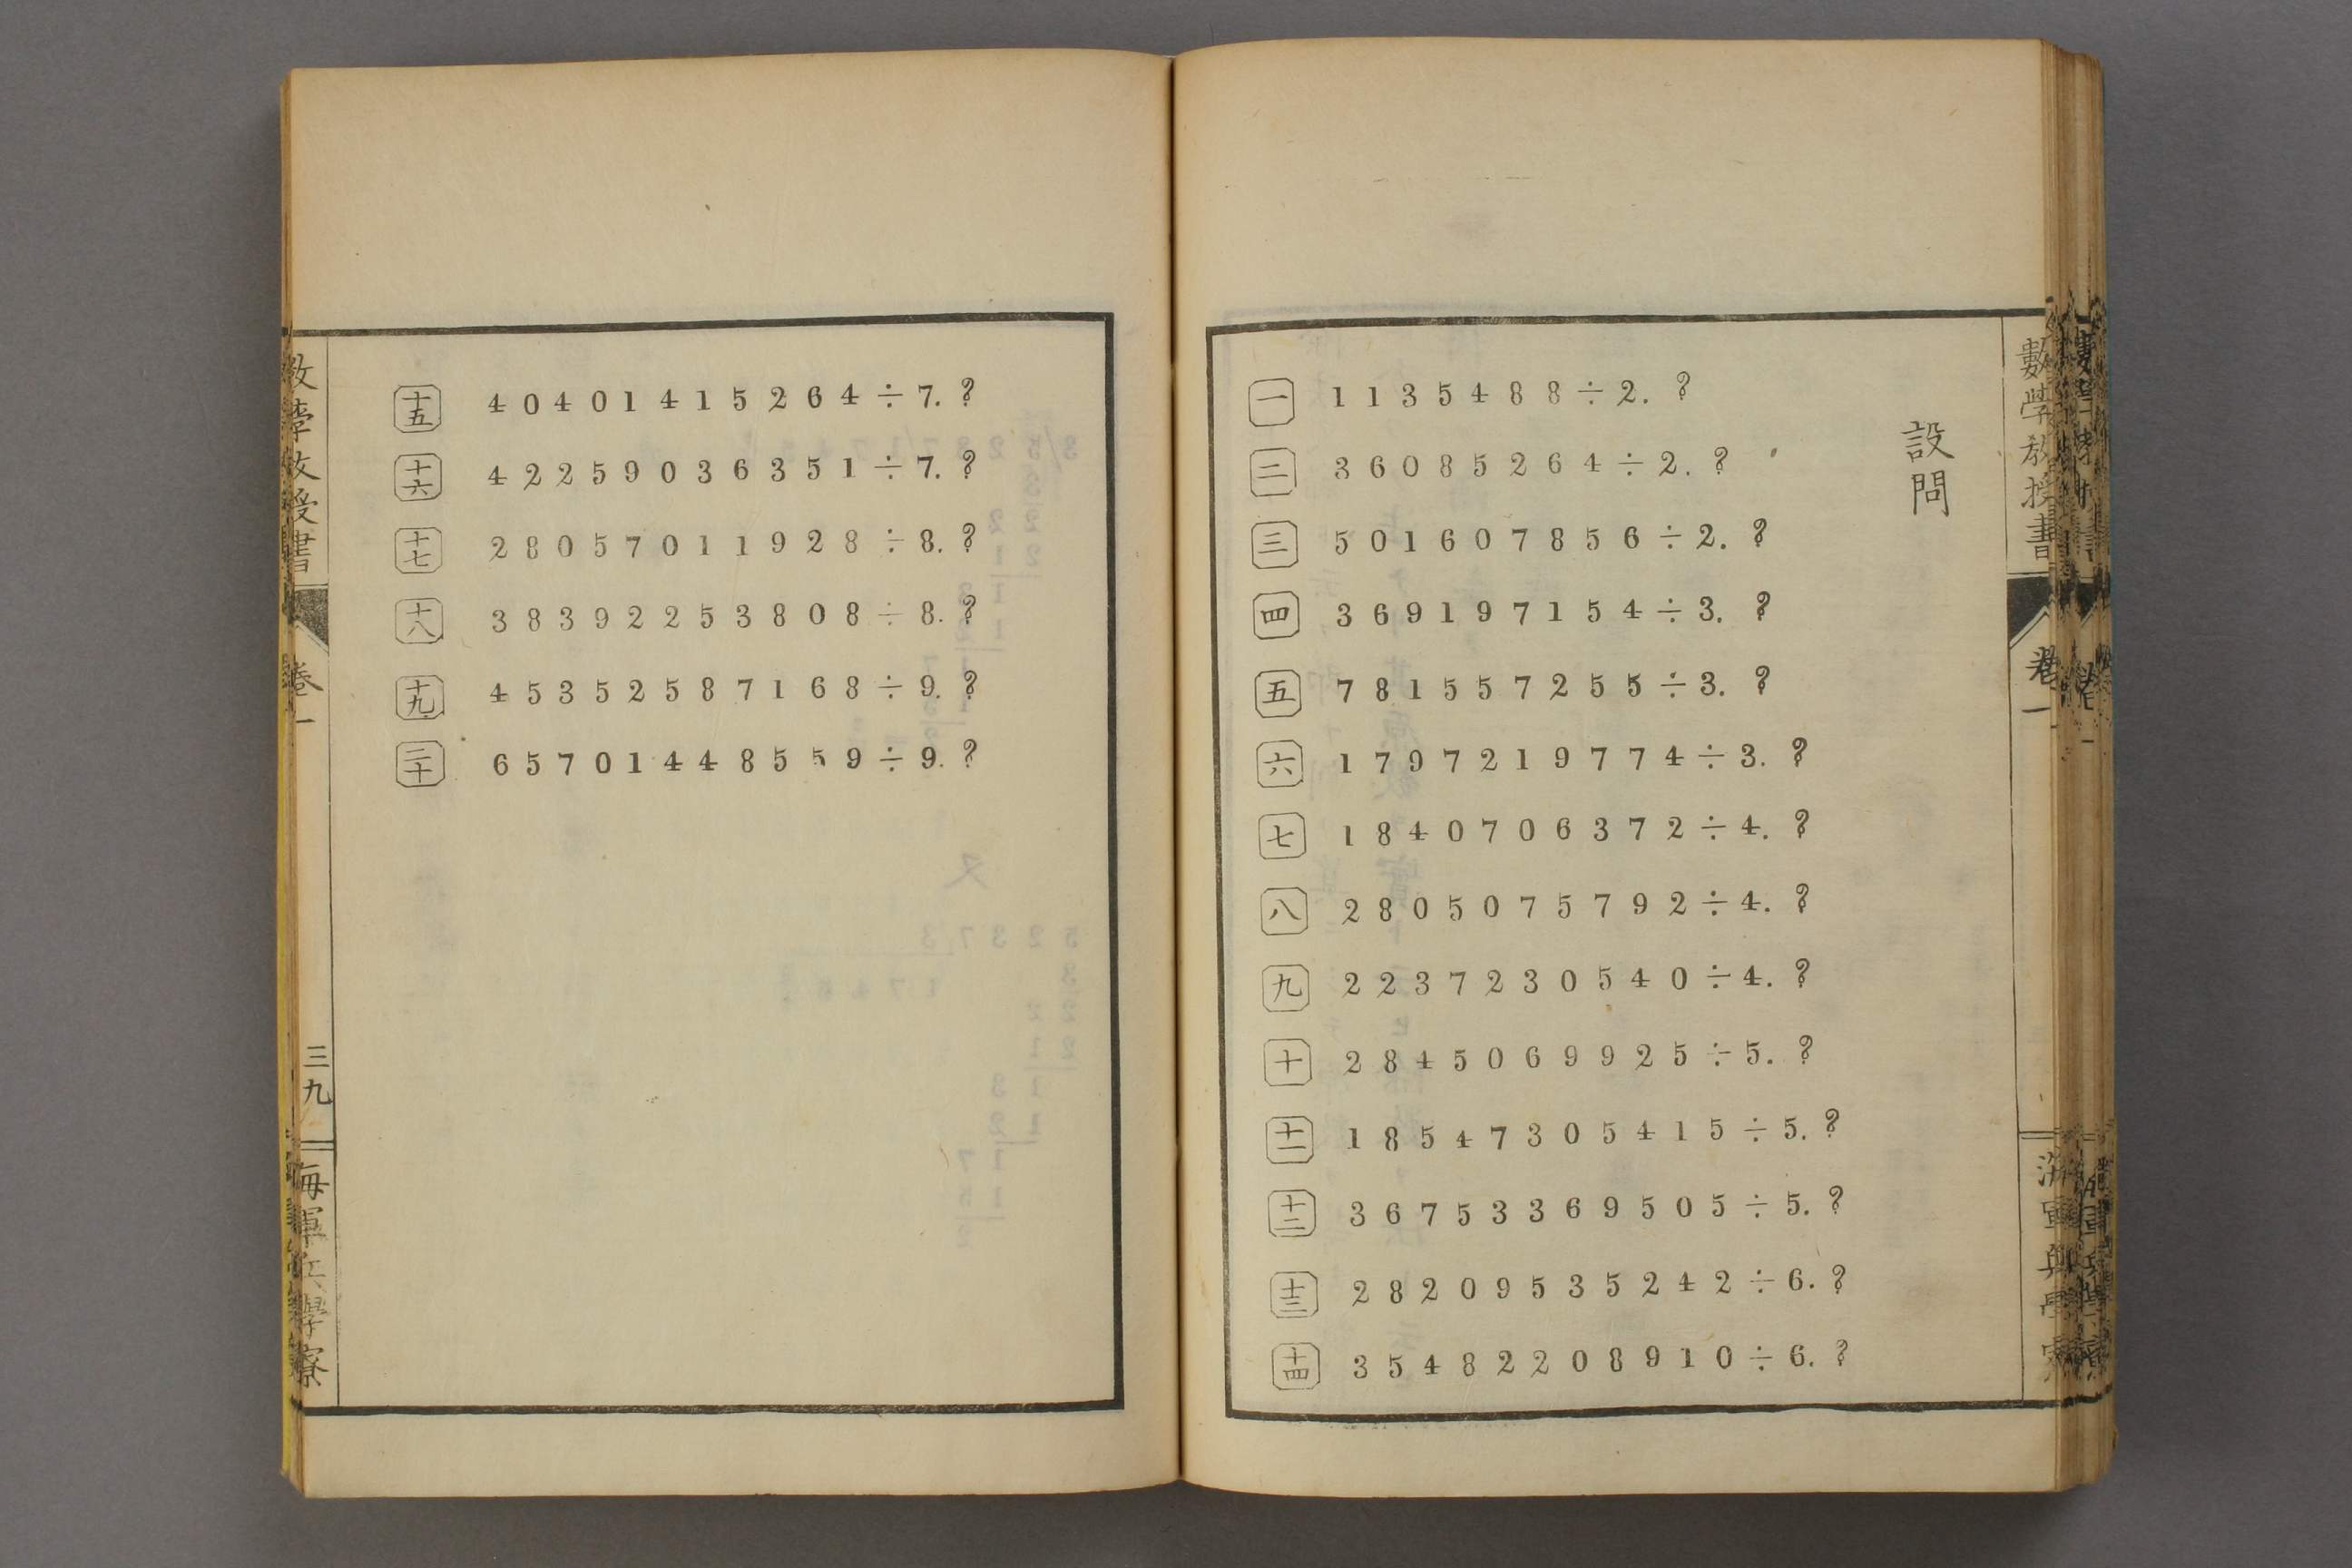 數學教授書
卷一
設問
一 1135488÷2. ?
二 36085264÷2. ?
三 501607856÷2. ?
四 369197154÷3. ?
五 781557255÷3. ?
六 1797219774÷3. ?
七 1840706372÷4. ?
八 2805075792÷4. ?
九 2237230540÷4. ?
十 2845069925÷5. ?
十一 18547305415÷5. ?
十二 36753369505÷5. ?
十三 28209535242÷6. ?
十四 35482208910÷6. ?
十五 40401415264÷7. ?
十六 42259036351÷7. ?
十七 28057011928÷8. ?
十八 38392253808÷8. ?
十九 45352587168÷9. ?
二十 65701448559÷9. ?
數學教授書
卷一
三九
海軍兵學寮